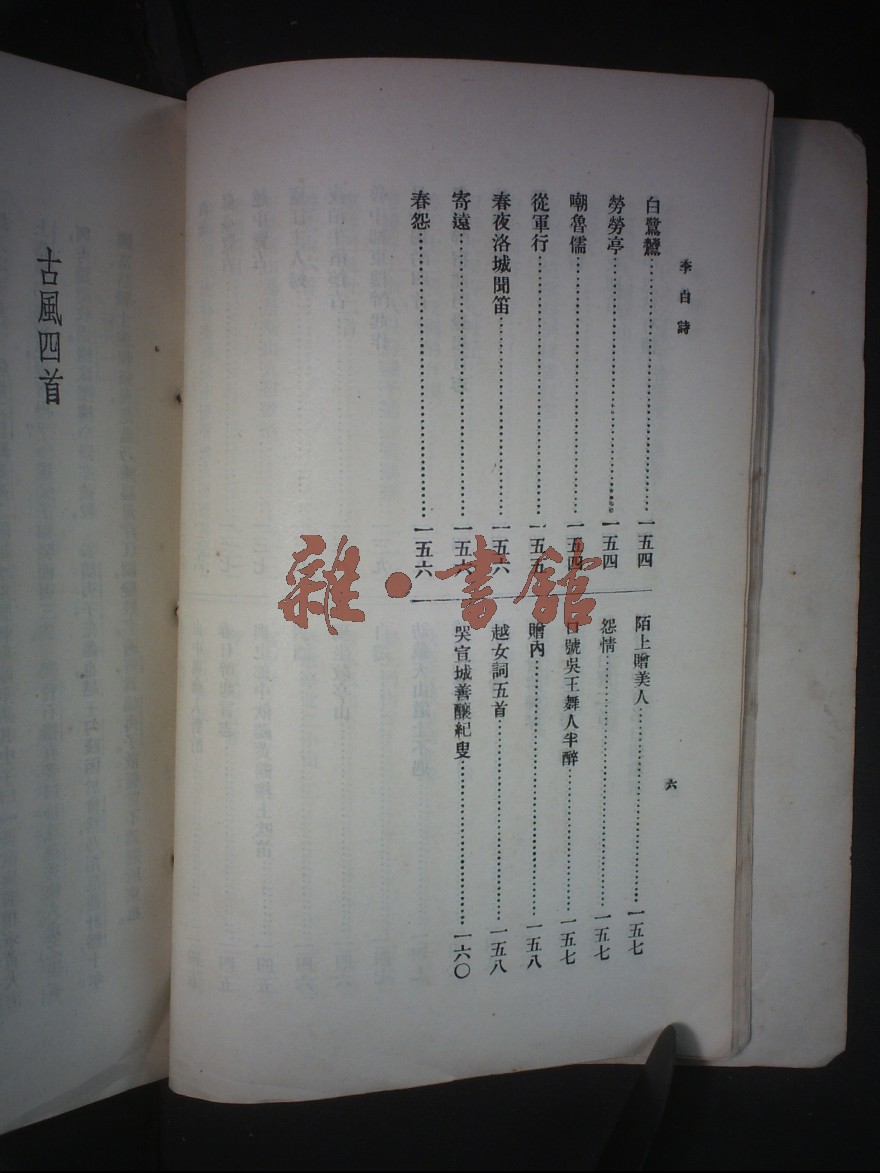 李白詩
白鷺鷥……一五四
勞勞亭……一五四
嘲魯儒……一五四
從軍行……一五五
春夜洛城聞笛……一五六
寄遠……一五六
春怨……一五六
陌上贈美人……一五七
怨情……一五七
口號吳王舞人半醉……一五七
贈內……一五八
越女詞五首……一五八
哭宣城善釀紀叟……一六〇
六
古風四首
雜·書館